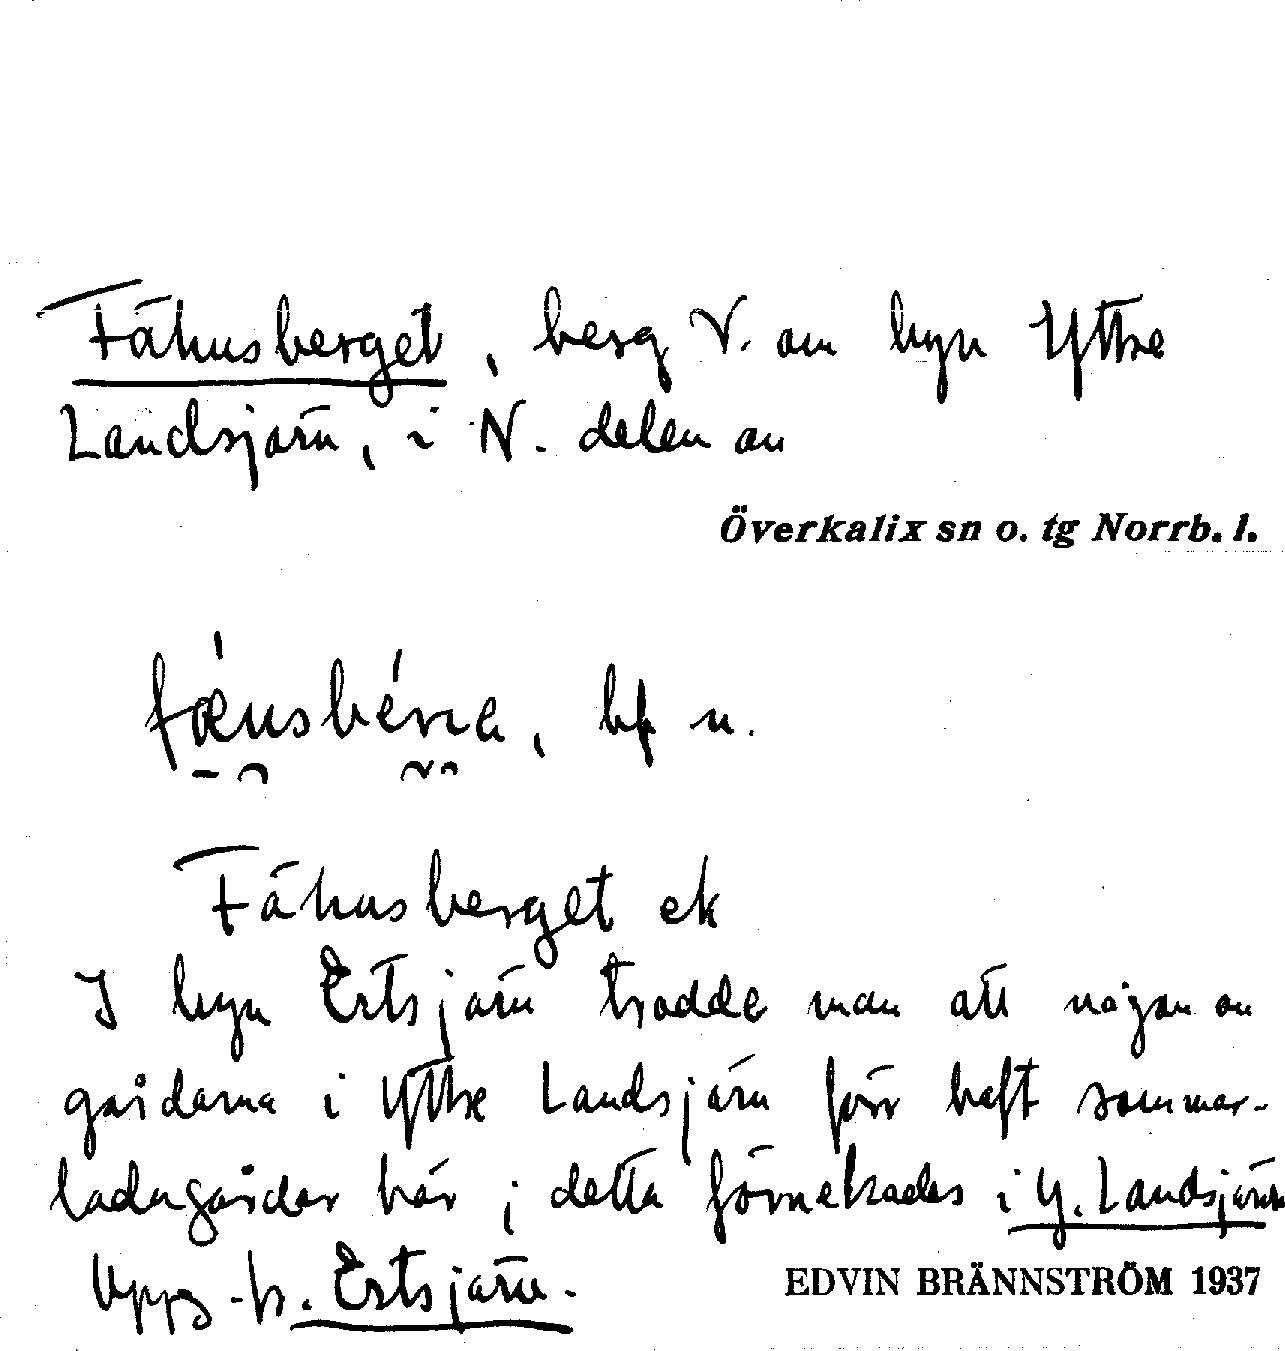 Fähusberget, berg V. om byn Yttre
Landsjärn, i N. delen av
Överkalix sn o. tg Norrb. l.
bf n.
Fähusberget ek
I byn Ertsjärn trodde man att någon av
gårdarna i Yttre Landsjärn förr haft sommar-
ladugårdar här; detta förnekades i Y. Landsjärn
Upps.-b. Ertsjärn.
EDVIN BRÄNNSTRÖM 1937